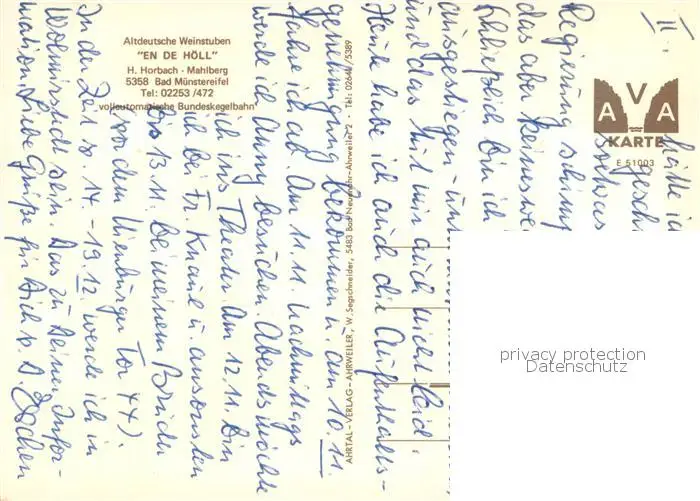 Altdeutsche Weinstuben
"EN DE HÖLL"
H. Horbach - Mahlberg
5358 Bad Münstereifel
Tel: 02253/472
vollautomatische Bundeskegelbahn
AHRTAL-VERLAG-AHRWEILER, W. Segschneider, 5483 Bad Neuenahr-Ahrweiler 2 · Tel: 02641/5389
AVA
KARTE
E 51003
privacy protection
Datenschutz
II.
hätte ic
gesch
etwas
Regierung schimp
das aber keineswe
schließlich bin ich
ausgestiegen - und
und das tut mir auch nicht leid.
Heute habe ich auch die Aufenthalts-
genehmigung bekommen u. am 10.11.
fahre ich ab. Am 11.11. nachmittags
werde ich Anny besuchen. Abends möchte
ich ins Theater. Am 12.11. bin
ich bei Fr. Knaul u. ansonsten
bis 13.11. bei meinem Bruder
vor dem Nienburger Tor
In der Zeit v. 14. - 19.12. werde ich in
Wolmirstedt sein. Das zu Deiner Infor-
mation. Liebe Grüße für Dich v. D.